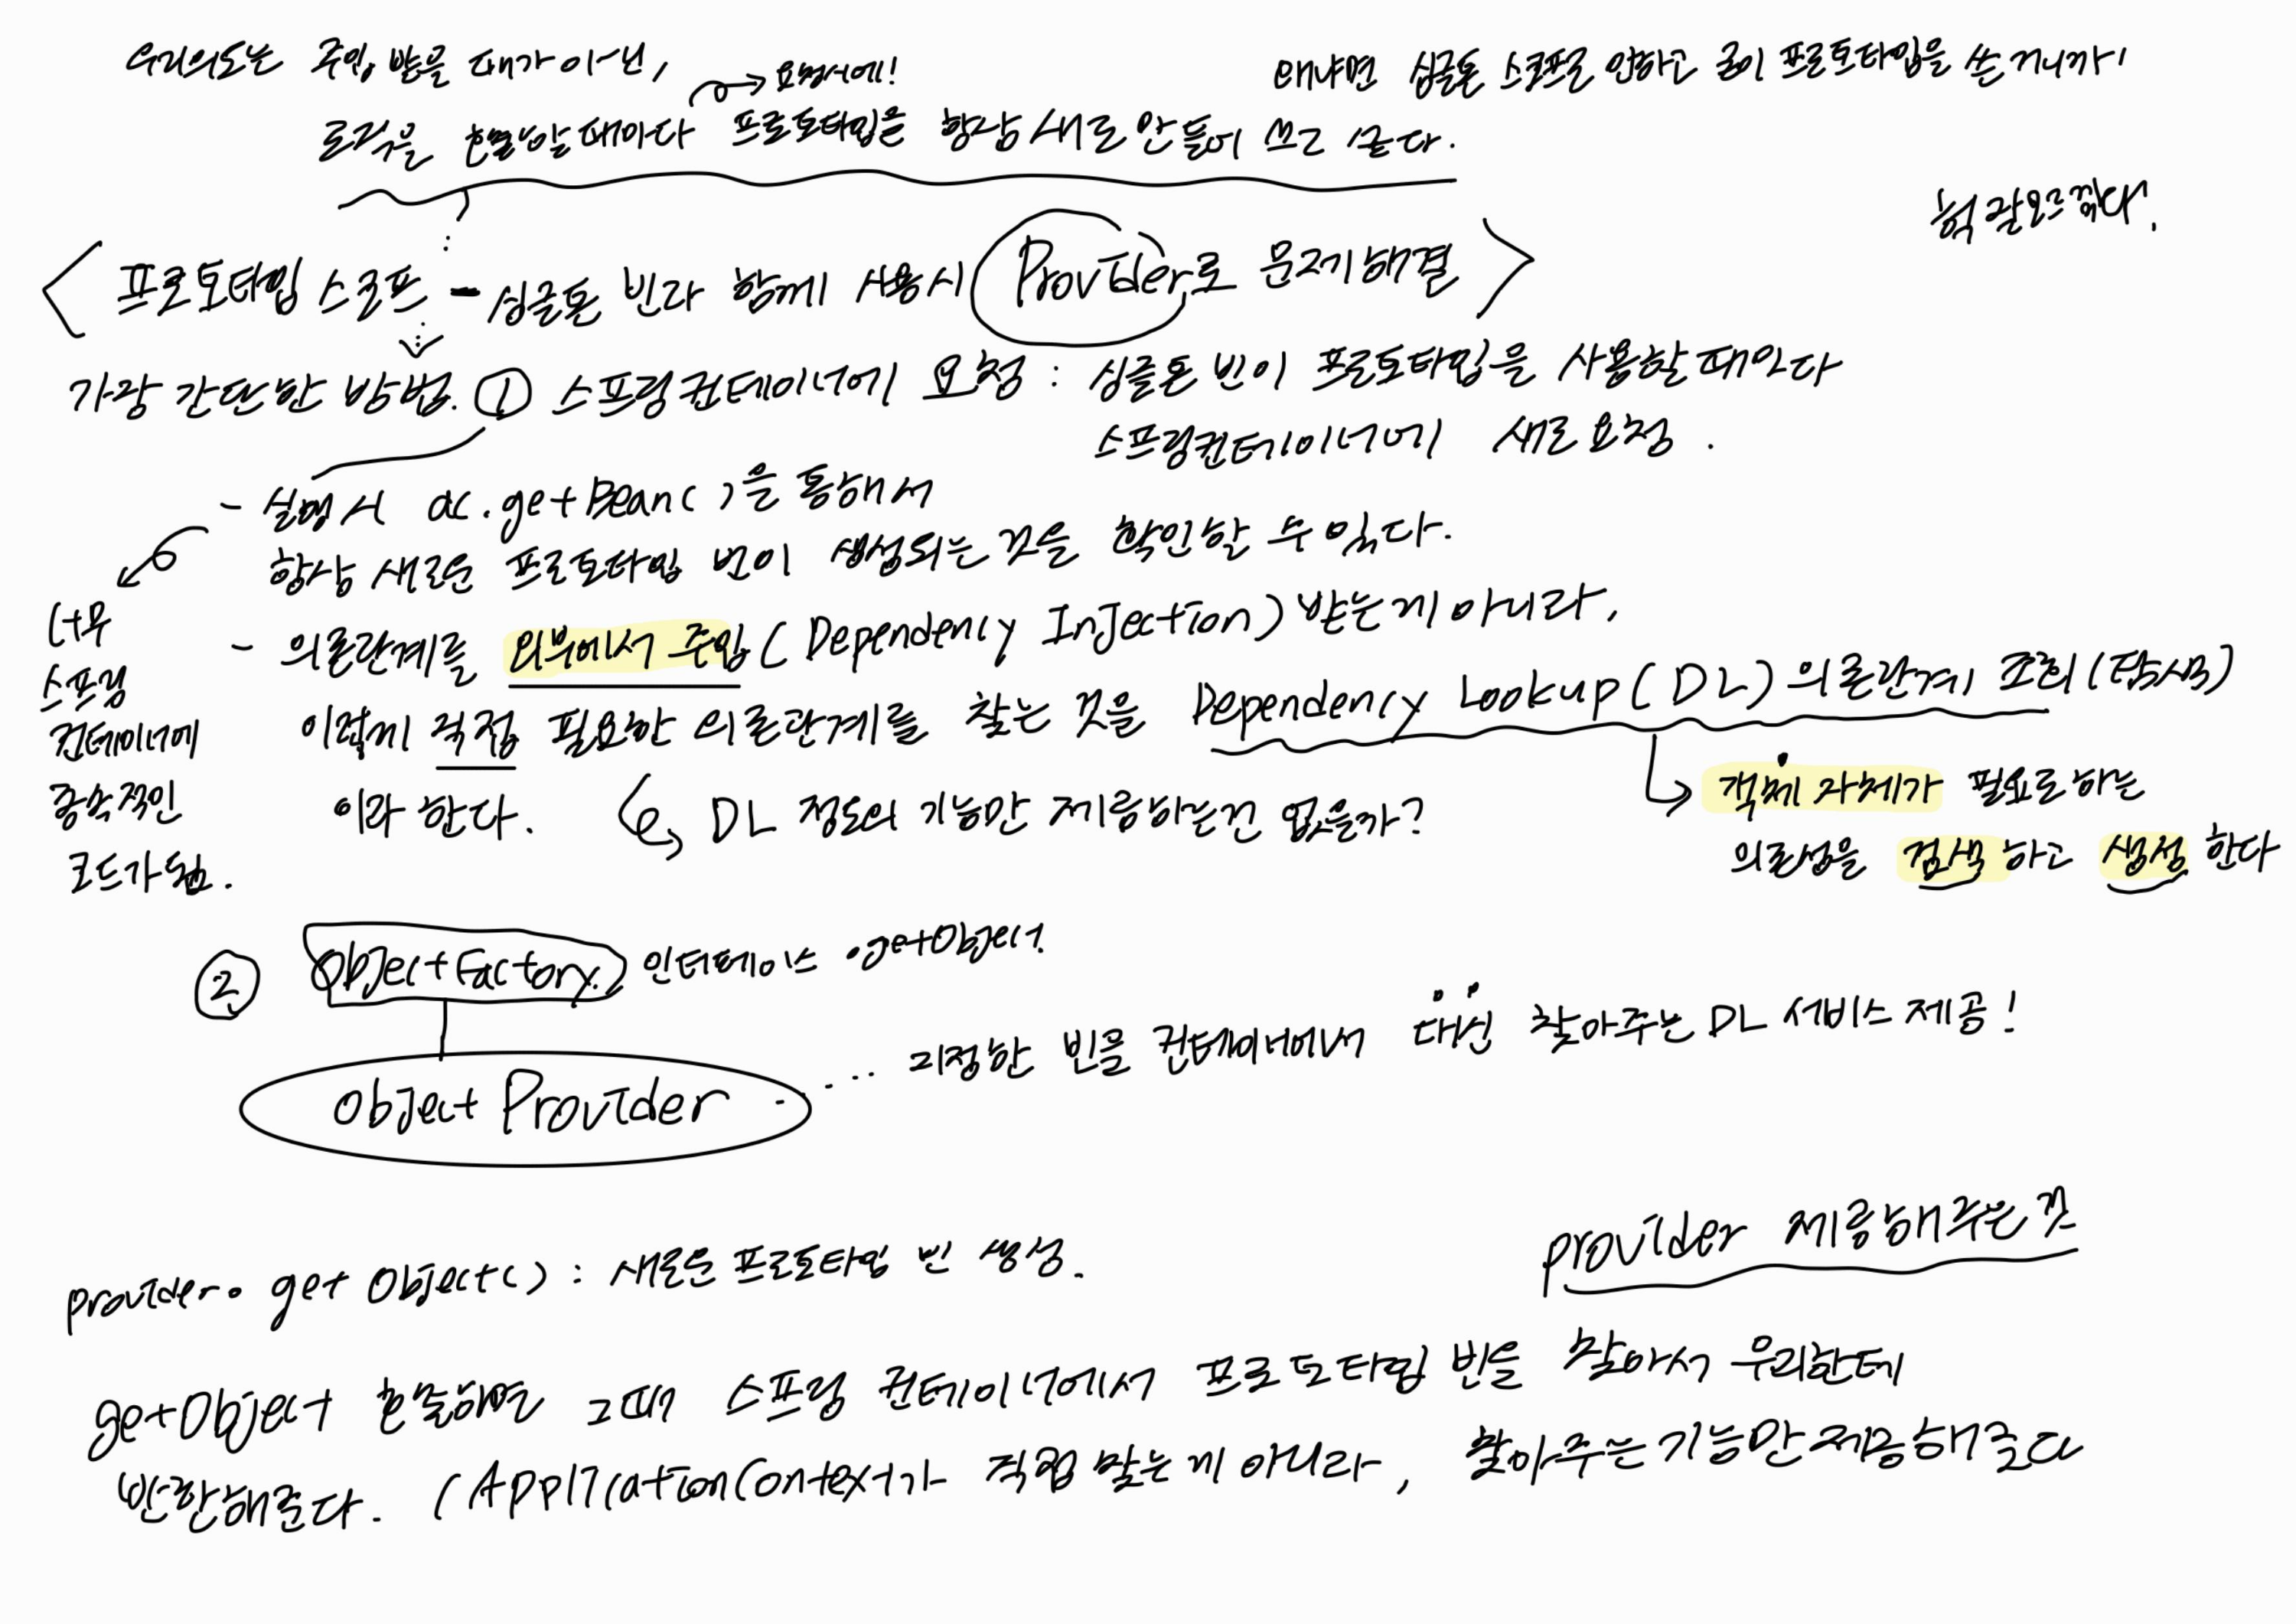 우리의도는 주입 받을 때가 아닌,
요청시에!
왜냐면 싱글톤 스코프로 안하고 굳이 프로토타입을 쓴거니까!
로직을 호출할때마다 프로토타입을 항상 새로 만들어 쓰고 싶다.
<프로토타입 스코프 - 싱글톤 빈과 함께 사용시 Provider로 문제해결>
가장 간단한 방법. ① 스프링컨테이너에 요청 : 싱글톤 빈이 프로토타입을 사용할때마다
스프링컨테이너에 새로 요청.
- 실행시 ac.getBean()을 통해서
항상 새로운 프로토타입 빈이 생성되는 것을 확인할 수 있다.
(너무
스프링
컨테이너에
종속적인
코드가 됨.
- 의존관계를 외부에서 주입(Dependency Injection) 받는게 아니라,
이렇게 직접 필요한 의존관계를 찾는 것을 Dependency Lookup(DL) 의존관계 조회(탐색)
이라 한다.
DL 정도의 기능만 제공하는건 없을까?
객체 자체가 필요로 하는
의존성을 검색하고 생성한다
② ObjectFactory. 인터페이스 .getObject.
Object Provider ... 지정한 빈을 컨테이너에서 대신 찾아주는 DL 서비스 제공!
provider 제공해주는 것
provider. getObject() : 새로운 프로토타입 빈 생성.
getObject 호출하면 그때 스프링 컨테이너에서 프로토타입 빈을 찾아서 우리한테
반환해준다. (ApplicationContext가 직접 찾는게 아니라, 찾아주는 기능만 제공해준다